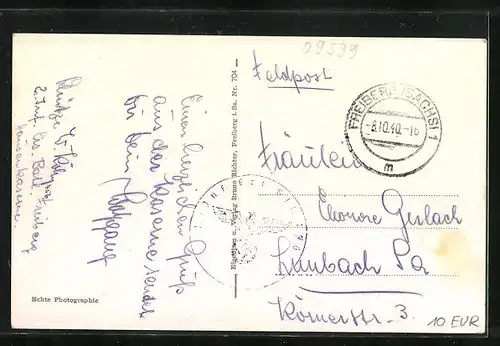 09539
Feldpost
FREIBERG (SACHS) 1
-8.10.40.-16
m
Fräulein
Eleonore Gerlach
Limbach Sa
Körnerstr. 3.
10 EUR
Eigentum u. Verlag Bruno Richter, Freiberg i. Sa. Nr. 704
Einen herzlichen Gruß
aus der Kaserne sendet
Dir Dein Wolfgang
Schütze W.
2. Inf. Ers. Batl. Freiberg
Echte Photographie